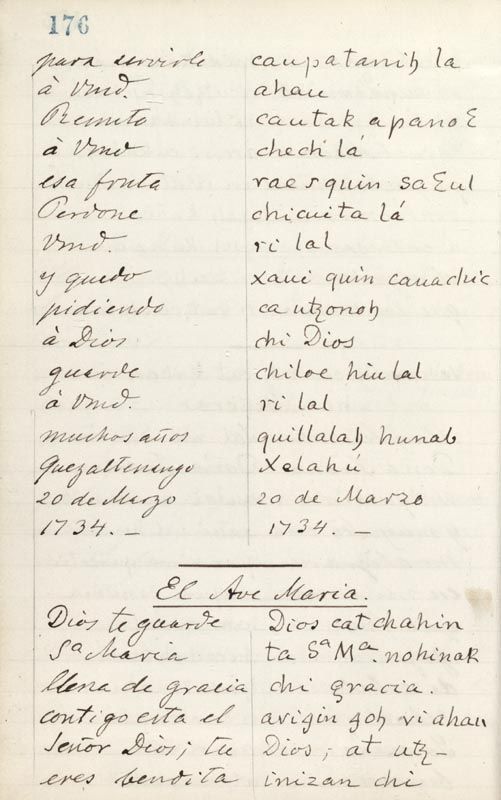 176
para servirle caupatanih la
à Vmd. ahau
Remito cautak apanoƐ
à Vmd chech lá
esa fruta rae rquin saƐul
Perdone chicuita lá
Vmd. ri lal
y quedo xaui quin cauachic
pidiendo ca utzonoh
à Dios chi Dios
guarde chiloe hiu lal
à Vmd. ri lal
muchos años quillalah hunab
Quezaltenengo Xelahú
20 de Marzo 20 de Marzo
1734. – 1734. –
El Ave Maria.
Dios te guarde Dios cat chahin
Sª Maria ta Sª Mª. nohinak
llena de gracia chi gracia.
contigo esta el avigin goh ri ahau
Señor Dios; tu Dios; at utz-
eres bendita inizan chi